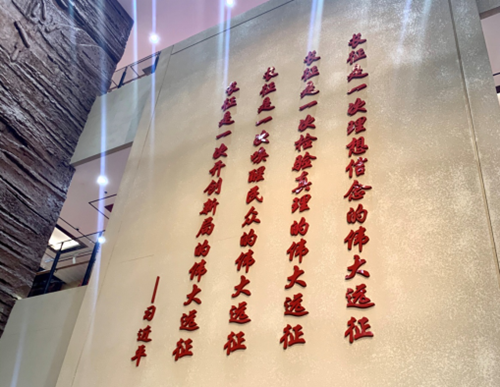 长征是一次理想信念的伟大远征
长征是一次检验真理的伟大远征
长征是一次唤醒民众的伟大远征
长征是一次开创新局的伟大远征
——习近平